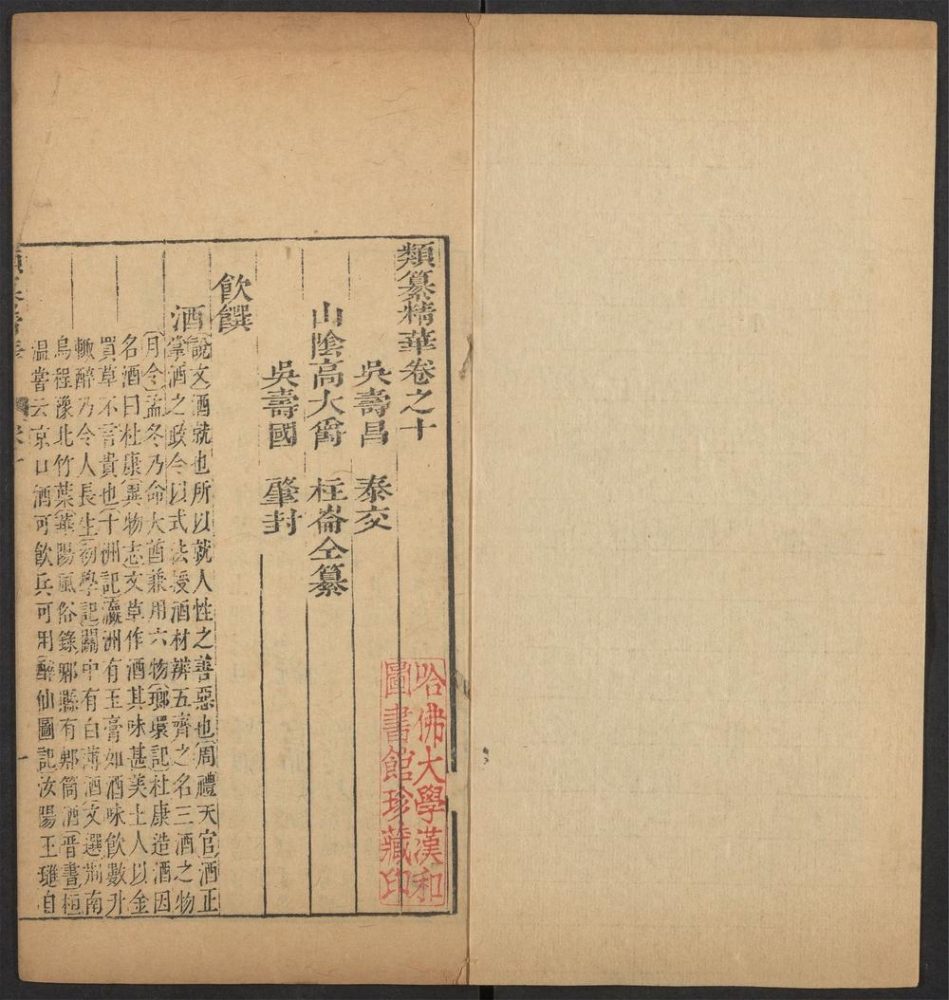 類纂精華卷之十
吳壽昌 泰交
山陰高大爵 柱崙仝纂
吳壽國 肇封
飲饌
酒
說文酒就也所以就人性之善惡也周禮天官酒正
掌酒之政令以式法授酒材辨五齊之名三酒之物
月令孟冬乃命大酋兼用六物瑯環記杜康造酒因
名酒曰杜康異物志文草作酒其味甚美土人以金
買草不言貴也十洲記瀛洲有玉膏如酒味飲數升
輙醉乃令人長生初學記關中有白薄酒文選荊南
烏程豫北竹葉華陽風俗錄郫縣有郫筒酒晋書桓
溫嘗云京口酒可飲兵可用醉仙圖記汝陽王璡自
一
哈佛大學漢和
圖書館珍藏印